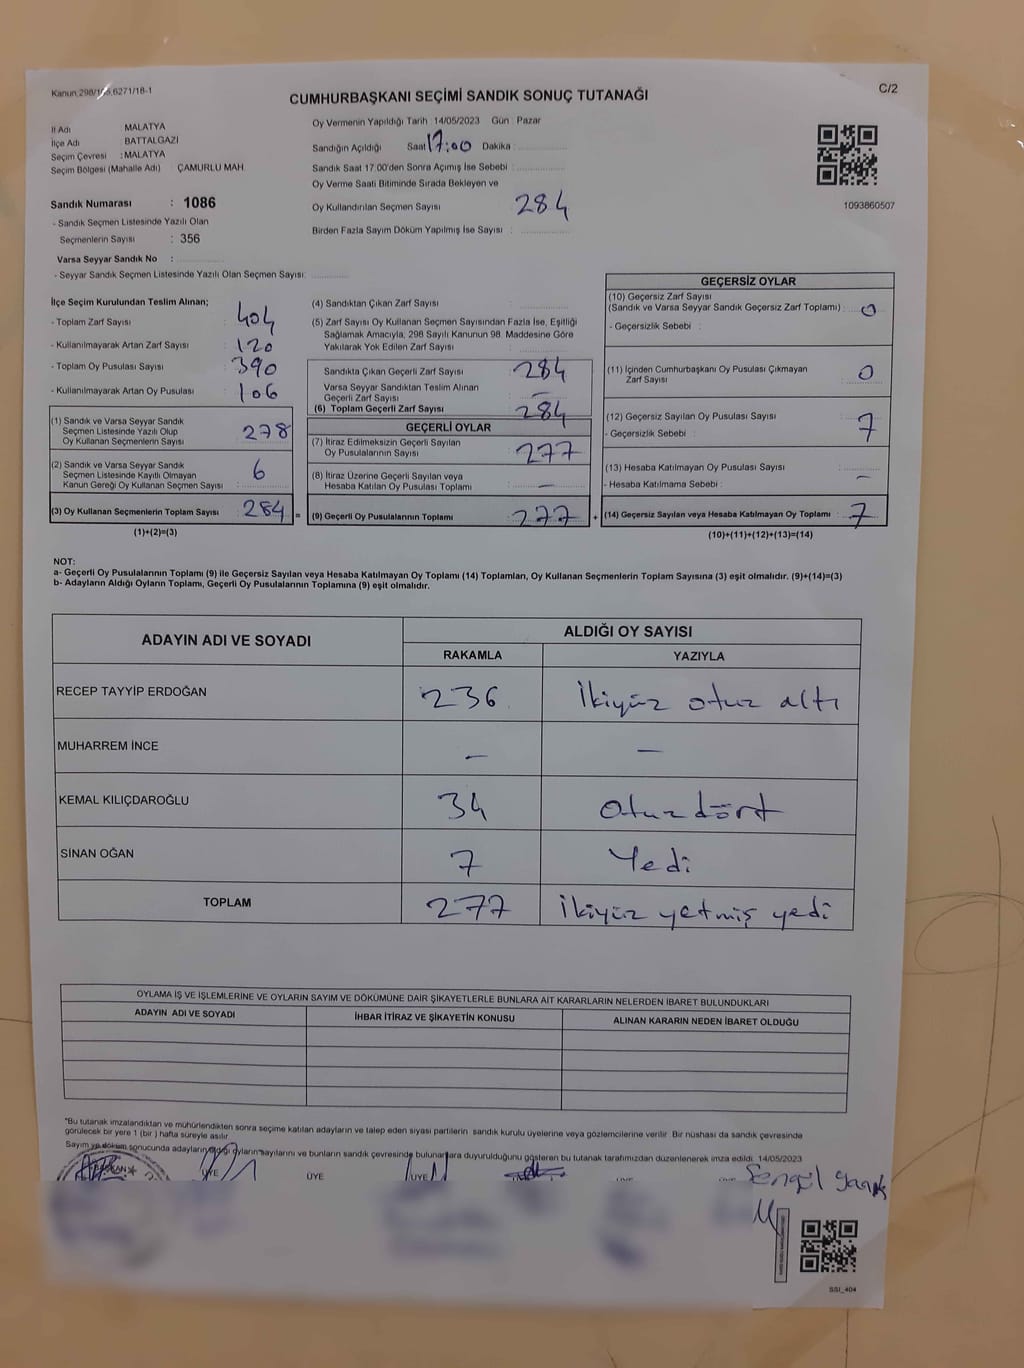 Kanun 298/105,6271/18-1
C/2
CUMHURBAŞKANI SEÇİMİ SANDIK SONUÇ TUTANAĞI
İl Adı MALATYA
İlçe Adı BATTALGAZİ
Seçim Çevresi : MALATYA
Seçim Bölgesi (Mahalle Adı) ÇAMURLU MAH
Sandık Numarası : 1086
- Sandık Seçmen Listesinde Yazılı Olan
Seçmenlerin Sayısı : 356
Varsa Seyyar Sandık No :
- Seyyar Sandık Seçmen Listesinde Yazılı Olan Seçmen Sayısı:
Oy Vermenin Yapıldığı Tarih : 14/05/2023 Gün : Pazar
Sandığın Açıldığı Saat 17:00 Dakika :
Sandık Saat 17:00'den Sonra Açımış İse Sebebi :
Oy Verme Saati Bitiminde Sırada Bekleyen ve
Oy Kullandırılan Seçmen Sayısı 284
Birden Fazla Sayım Döküm Yapılmış İse Sayısı :
1093860507
İlçe Seçim Kurulundan Teslim Alınan;
- Toplam Zarf Sayısı : 404
- Kullanılmayarak Artan Zarf Sayısı : 120
- Toplam Oy Pusulası Sayısı : 390
- Kullanılmayarak Artan Oy Pusulası : 106
(1) Sandık ve Varsa Seyyar Sandık
Seçmen Listesinde Yazılı Olup
Oy Kullanan Seçmenlerin Sayısı : 278
(2) Sandık ve Varsa Seyyar Sandık
Seçmen Listesinde Kayıtlı Olmayan
Kanun Gereği Oy Kullanan Seçmen Sayısı : 6
(3) Oy Kullanan Seçmenlerin Toplam Sayısı : 284 =
(1)+(2)=(3)
(4) Sandıktan Çıkan Zarf Sayısı :
(5) Zarf Sayısı Oy Kullanan Seçmen Sayısından Fazla İse, Eşitliği
Sağlamak Amacıyla, 298 Sayılı Kanunun 98. Maddesine Göre
Yakılarak Yok Edilen Zarf Sayısı :
Sandıkta Çıkan Geçerli Zarf Sayısı : 284
Varsa Seyyar Sandıktan Teslim Alınan
Geçerli Zarf Sayısı : –
(6) Toplam Geçerli Zarf Sayısı : 284
GEÇERLİ OYLAR
(7) İtiraz Edilmeksizin Geçerli Sayılan
Oy Pusulalarının Sayısı : 277
(8) İtiraz Üzerine Geçerli Sayılan veya
Hesaba Katılan Oy Pusulası Toplamı : –
(9) Geçerli Oy Pusulalarının Toplamı : 277 +
GEÇERSİZ OYLAR
(10) Geçersiz Zarf Sayısı
(Sandık ve Varsa Seyyar Sandık Geçersiz Zarf Toplamı) : 0
- Geçersizlik Sebebi :
(11) İçinden Cumhurbaşkanı Oy Pusulası Çıkmayan
Zarf Sayısı : 0
(12) Geçersiz Sayılan Oy Pusulası Sayısı : 7
- Geçersizlik Sebebi :
(13) Hesaba Katılmayan Oy Pusulası Sayısı :
- Hesaba Katılmama Sebebi : –
(14) Geçersiz Sayılan veya Hesaba Katılmayan Oy Toplamı : 7
(10)+(11)+(12)+(13)=(14)
NOT:
a- Geçerli Oy Pusulalarının Toplamı (9) ile Geçersiz Sayılan veya Hesaba Katılmayan Oy Toplamı (14) Toplamları, Oy Kullanan Seçmenlerin Toplam Sayısına (3) eşit olmalıdır. (9)+(14)=(3)
b- Adayların Aldığı Oyların Toplamı, Geçerli Oy Pusulalarının Toplamına (9) eşit olmalıdır.
ADAYIN ADI VE SOYADI ALDIĞI OY SAYISI
RAKAMLA YAZIYLA
RECEP TAYYİP ERDOĞAN 236 İkiyüz otuz altı
MUHARREM İNCE – –
KEMAL KILIÇDAROĞLU 34 Otuzdört
SİNAN OĞAN 7 Yedi
TOPLAM 277 İkiyüz yetmiş yedi
OYLAMA İŞ VE İŞLEMLERİNE VE OYLARIN SAYIM VE DÖKÜMÜNE DAİR ŞİKAYETLERLE BUNLARA AİT KARARLARIN NELERDEN İBARET BULUNDUKLARI
ADAYIN ADI VE SOYADI İHBAR İTİRAZ VE ŞİKAYETİN KONUSU ALINAN KARARIN NEDEN İBARET OLDUĞU
*Bu tutanak imzalandıktan ve mühürlendikten sonra seçime katılan adayların ve talep eden siyasi partilerin sandık kurulu üyelerine veya gözlemcilerine verilir. Bir nüshası da sandık çevresinde
görülecek bir yere 1 (bir) hafta süreyle asılır
Sayım ve döküm sonucunda adayların aldığı oyların sayılarını ve bunların sandık çevresinde bulunanlara duyurulduğunu gösteren bu tutanak tarafımızdan düzenlenerek imza edildi. 14/05/2023
BAŞKAN ÜYE ÜYE ÜYE
Şengül
SSİ_404